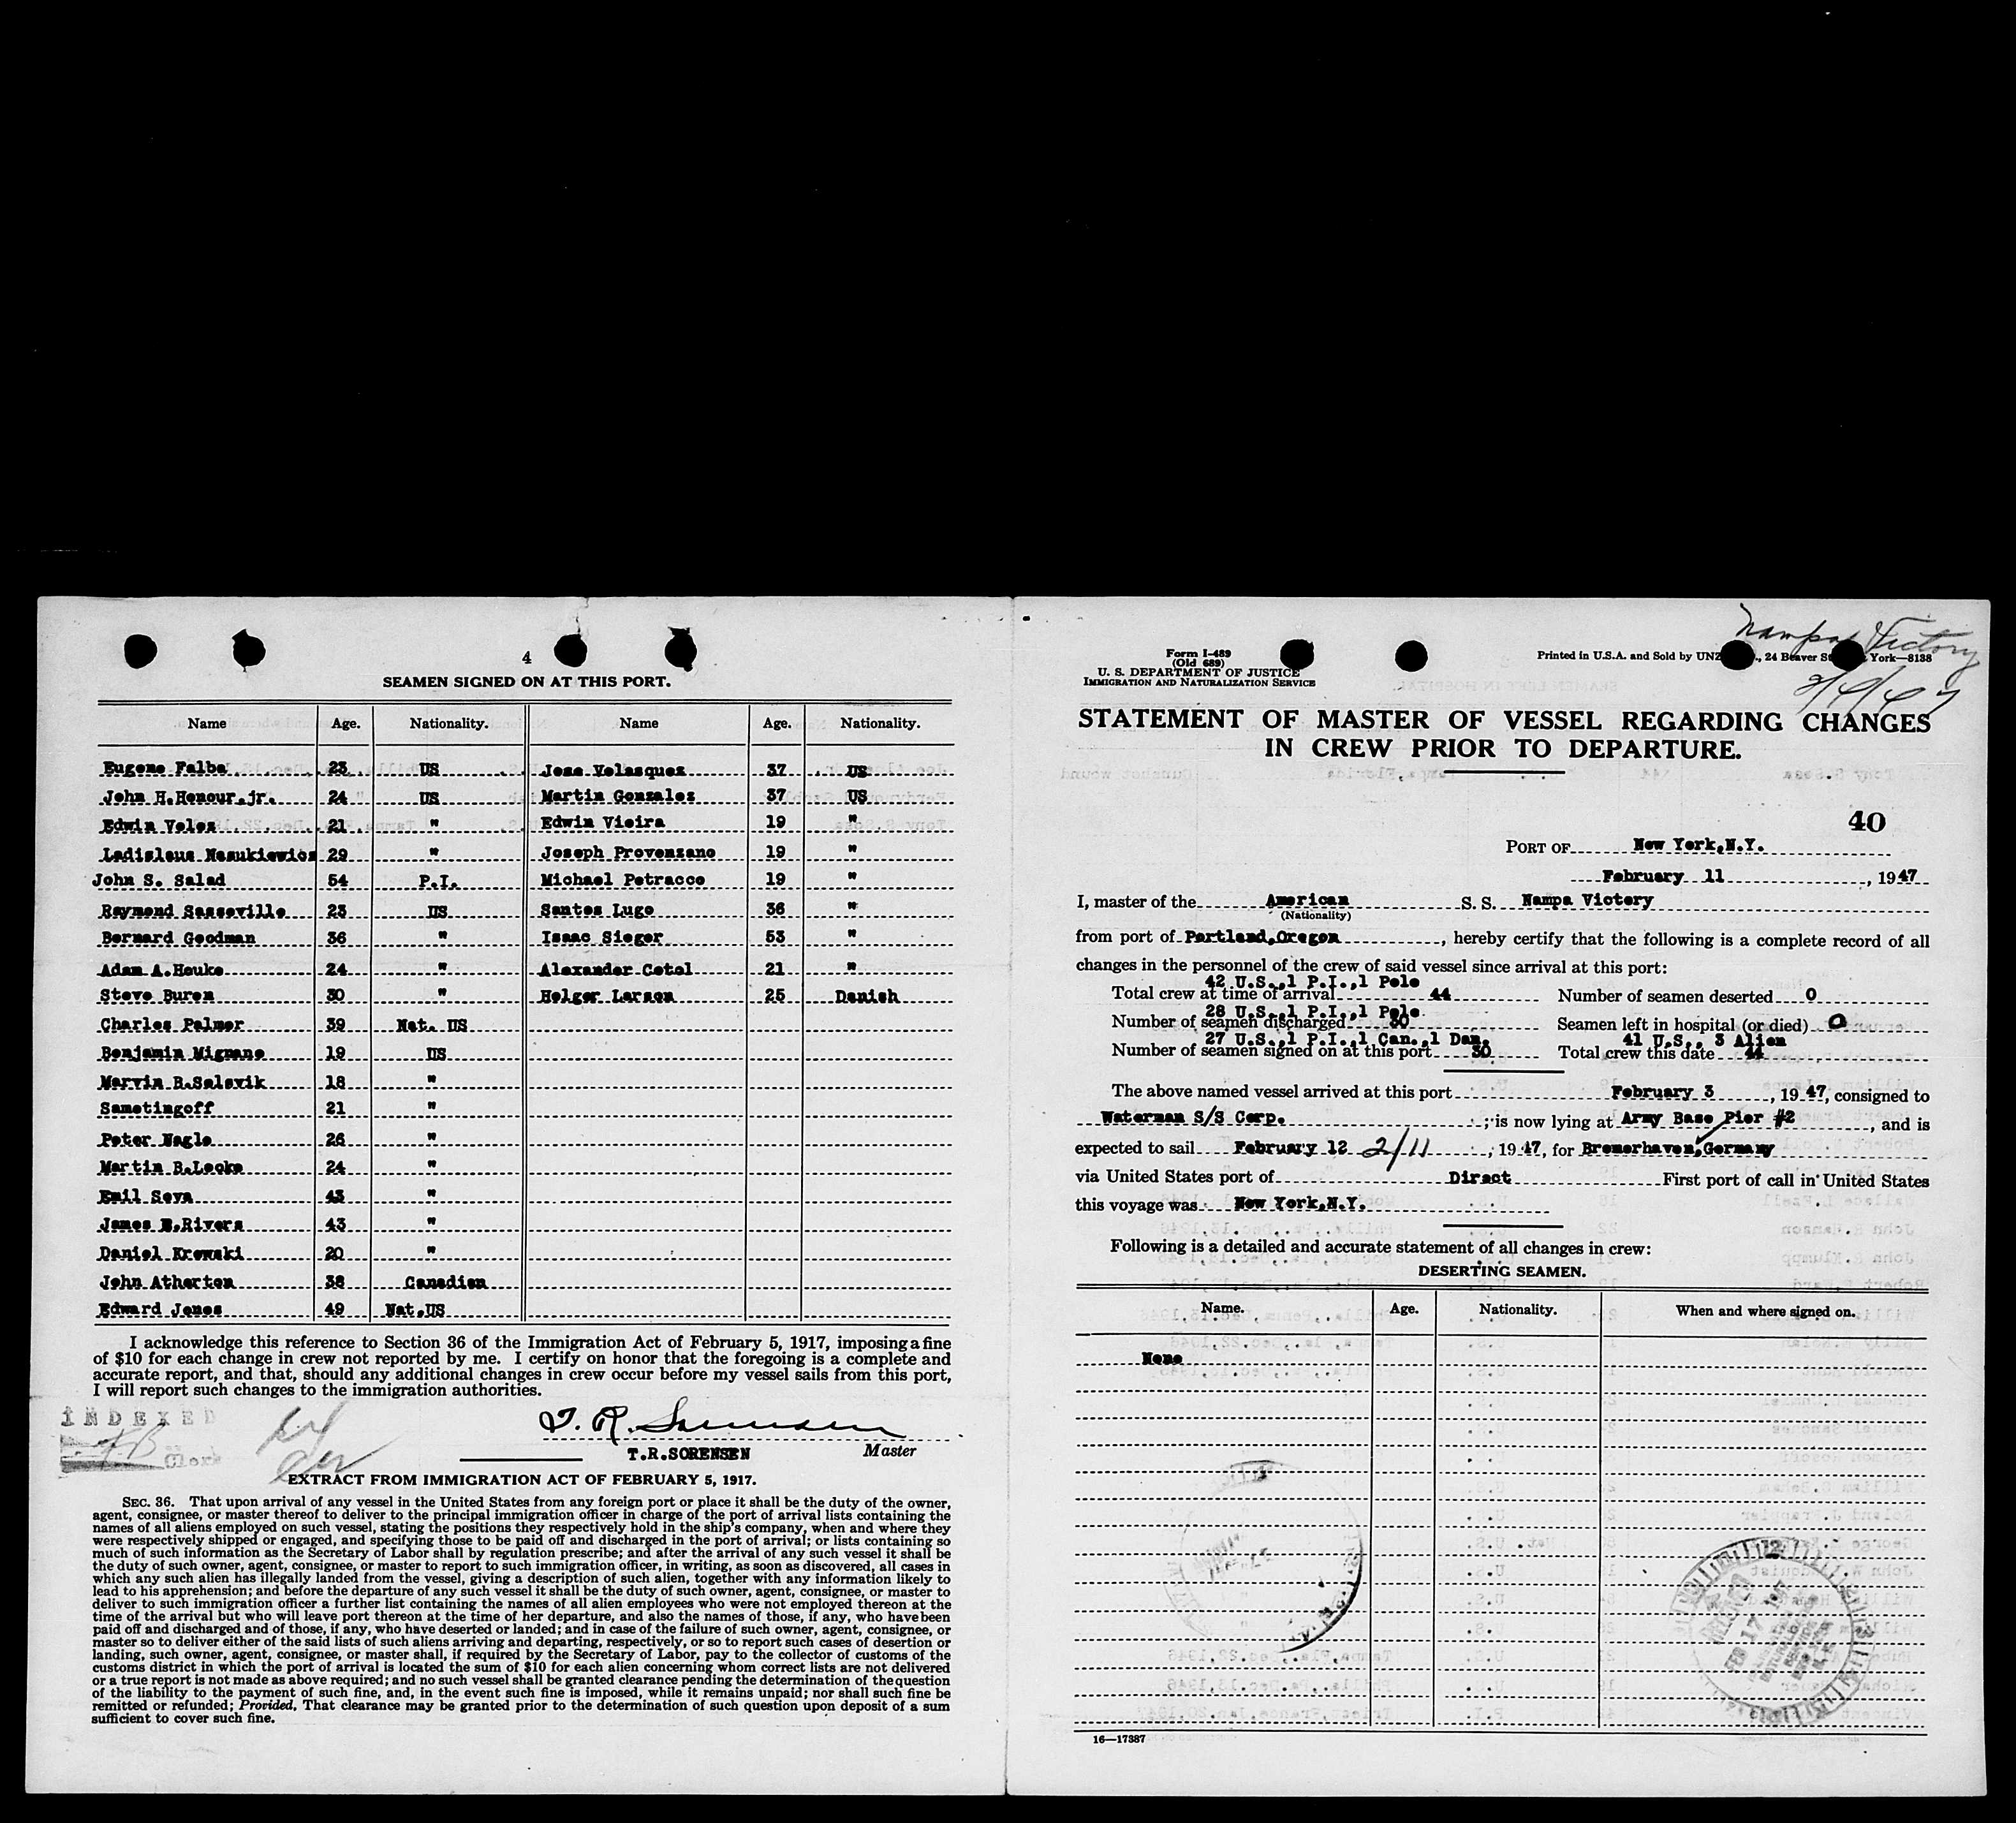 4
SEAMEN SIGNED ON AT THIS PORT.
Name Age. Nationality. Name Age. Nationality.
Eugene Falbe 23 US Jose Velasquez 37 US
John H.Honour.jr. 24 US Martin Gonzalez 37 US
Edwin Velez 21 " Edwin Vieira 19 "
Ladislaus Masukiewicz 29 " Joseph Provenzano 19 "
John S. Salad 54 P.I. Michael Petracco 19 "
Raymond Sasseville 23 US Santos Lugo 36 "
Bernard Goodman 36 " Isaac Sieger 53 "
Adam A.Houke 24 " Alexander Cotol 21 "
Steve Buren 30 " Holger Larson 25 Danish
Charles Palmer 39 Nat. US
Benjamin Mignano 19 US
Marvin R.Salsvik 18 "
Sametingoff 21 "
Peter Nagle 26 "
Martin B.Locke 24 "
Emil Seva 43 "
James E.Rivera 43 "
Daniel Krewski 20 "
John Atherton 38 Canadian
Edward Jones 49 Nat.US
I acknowledge this reference to Section 36 of the Immigration Act of February 5, 1917, imposing a fine
of $10 for each change in crew not reported by me. I certify on honor that the foregoing is a complete and
accurate report, and that, should any additional changes in crew occur before my vessel sails from this port,
I will report such changes to the immigration authorities.
INDEXED
Clerk
T. R. Sorensen
T.R.SORENSEN Master
EXTRACT FROM IMMIGRATION ACT OF FEBRUARY 5, 1917.
SEC. 36. That upon arrival of any vessel in the United States from any foreign port or place it shall be the duty of the owner,
agent, consignee, or master thereof to deliver to the principal immigration officer in charge of the port of arrival lists containing the
names of all aliens employed on such vessel, stating the positions they respectively hold in the ship's company, when and where they
were respectively shipped or engaged, and specifying those to be paid off and discharged in the port of arrival; or lists containing so
much of such information as the Secretary of Labor shall by regulation prescribe; and after the arrival of any such vessel it shall be
the duty of such owner, agent, consignee, or master to report to such immigration officer, in writing, as soon as discovered, all cases in
which any such alien has illegally landed from the vessel, giving a description of such alien, together with any information likely to
lead to his apprehension; and before the departure of any such vessel it shall be the duty of such owner, agent, consignee, or master to
deliver to such immigration officer a further list containing the names of all alien employees who were not employed thereon at the
time of the arrival but who will leave port thereon at the time of her departure, and also the names of those, if any, who have been
paid off and discharged and of those, if any, who have deserted or landed; and in case of the failure of such owner, agent, consignee, or
master so to deliver either of the said lists of such aliens arriving and departing, respectively, or so to report such cases of desertion or
landing, such owner, agent, consignee, or master shall, if required by the Secretary of Labor, pay to the collector of customs of the
customs district in which the port of arrival is located the sum of $10 for each alien concerning whom correct lists are not delivered
or a true report is not made as above required; and no such vessel shall be granted clearance pending the determination of the question
of the liability to the payment of such fine, and, in the event such fine is imposed, while it remains unpaid; nor shall such fine be
remitted or refunded; Provided, That clearance may be granted prior to the determination of such question upon deposit of a sum
sufficient to cover such fine.
Nampa Victory
Form I-489
(Old 689)
U. S. DEPARTMENT OF JUSTICE
IMMIGRATION AND NATURALIZATION SERVICE
Printed in U.S.A. and Sold by UNZ ., 24 Beaver St York—8138
STATEMENT OF MASTER OF VESSEL REGARDING CHANGES
IN CREW PRIOR TO DEPARTURE.
40
PORT OF New York,N.Y.
February 11, 1947
I, master of the American S. S. Nampa Victory
(Nationality)
from port of Portland,Oregon, hereby certify that the following is a complete record of all
changes in the personnel of the crew of said vessel since arrival at this port:
42 U.S.,1 P.I.,1 Pole
Total crew at time of arrival 44 Number of seamen deserted 0
28 U.S.,1 P.I.,1 Pole
Number of seamen discharged 30 Seamen left in hospital (or died) 0
27 U.S.,1 P.I.,1 Can.,1 Dan. 41 U.S., 3 Alien
Number of seamen signed on at this port 30 Total crew this date 44
The above named vessel arrived at this port February 3, 1947, consigned to
Waterman S/S Corp.; is now lying at Army Base Pier #2, and is
expected to sail February 12 2/11, 1947, for Bremerhaven,Germany
via United States port of Direct First port of call in United States
this voyage was New York,N.Y.
Following is a detailed and accurate statement of all changes in crew:
DESERTING SEAMEN.
Name. Age. Nationality. When and where signed on.
None
FEB 17 1947
16—17387